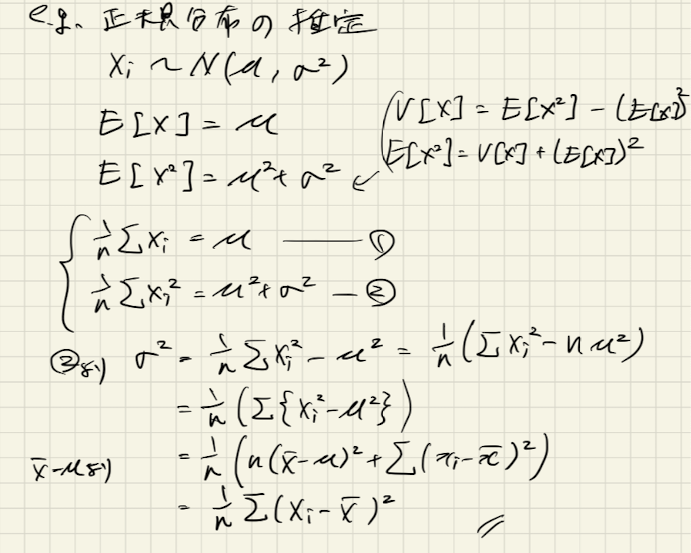 e.g. 正規分布の推定
Xᵢ ~ N(μ, σ²)
E[X] = μ
(V[X] = E[X²] - (E[X])²
E[X²] = μ² + σ² ↙
E[X²] = V[X] + (E[X])²
{ 1/n Σ Xᵢ = μ —— ①
1/n Σ Xᵢ² = μ² + σ² — ②
②より σ² = 1/n Σ Xᵢ² - μ² = 1/n (Σ Xᵢ² - nμ²)
= 1/n (Σ{Xᵢ² - μ²})
x̄ = μより = 1/n (n(x̄ - μ)² + Σ(xᵢ - x̄)²)
= 1/n Σ(Xᵢ - X̄)² //